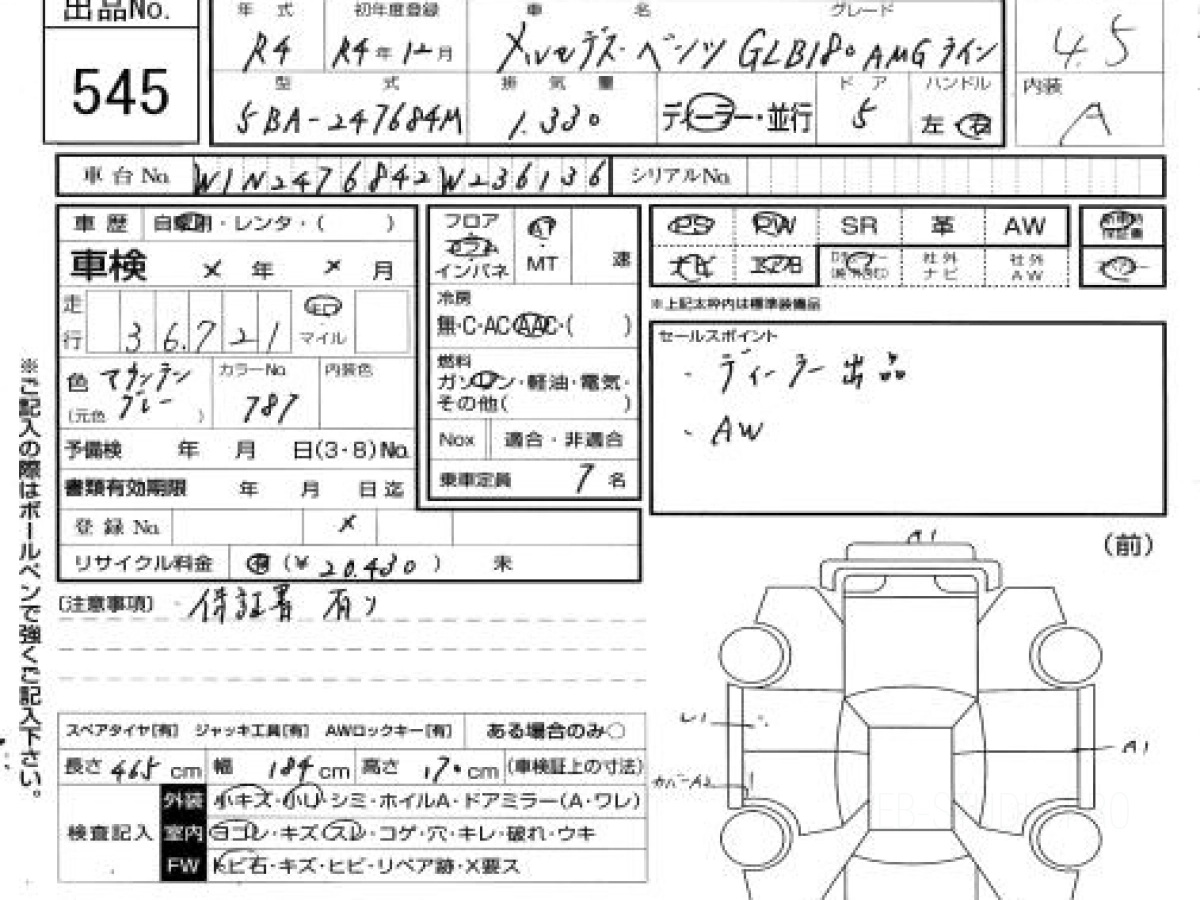 出品No.
545
年 式 初年度登録 車 名 グレード
R4 R4年12月 メルセデス・ベンツ GLB180 AMGライン 4.5
型 式 排 気 量 ドア ハンドル 内装
5BA-247684M 1.330 ディーラー・並行 5 左 右 A
車台No. W1N2476842W236136 シリアルNo.
車 歴 自家用・レンタ・( )
車検 × 年 × 月
走行 36,721 キロ マイル
色 マウンテングレー (元色 ) カラーNo. 787 内装色
予備検 年 月 日(3・8)No.
書類有効期限 年 月 日迄
登録No. ×
リサイクル料金 有 (¥ 20.430 ) 未
フロア コラム インパネ AT MT 速
冷房
無・C・AC・AAC・( )
燃料
ガソリン・軽油・電気・
その他( )
Nox 適合・非適合
乗車定員 7 名
PS PW SR 革 AW 新車時保証書
ナビ エアB 社外ナビ 社外AW
※上記太枠内は標準装備品
セールスポイント
・ディーラー出品
・AW
[注意事項] ・保証書 有り
※ご記入の際はボールペンで強くご記入下さい。
スペアタイヤ[有] ジャッキ工具[有] AWロックキー[有] ある場合のみ○
長さ 465 cm 幅 184 cm 高さ 170 cm (車検証上の寸法)
検査記入
外装 小キズ・小U・シミ・ホイルA・ドアミラー(A・ワレ)
室内 ヨゴレ・キズ・スレ・コゲ・穴・キレ・破れ・ウキ
FW トビ石・キズ・ヒビ・リペア跡・X要ス
(前)
A1
U1
A1
カバーA2